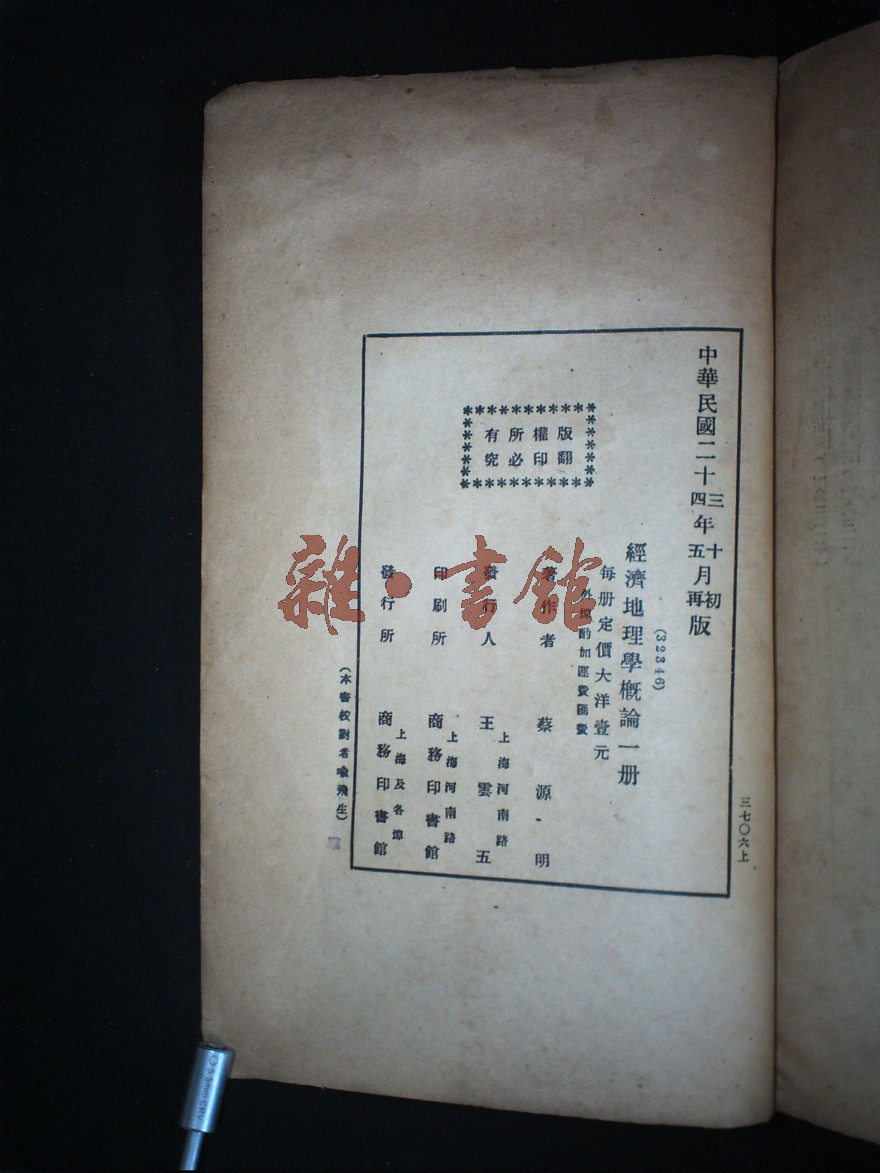 中華民國二十三年十月初版
四五再
(32346)
經濟地理學概論一册
每册定價大洋壹元
外埠酌加運費匯費
著作者 蔡源明
發行人 王雲五
上海河南路
印刷所 商務印書館
上海河南路
發行所 商務印書館
上海及各埠
版權所有
翻印必究
(本書校對者喻飛生)
三七〇六上
雜·書館
0.55mmCRV